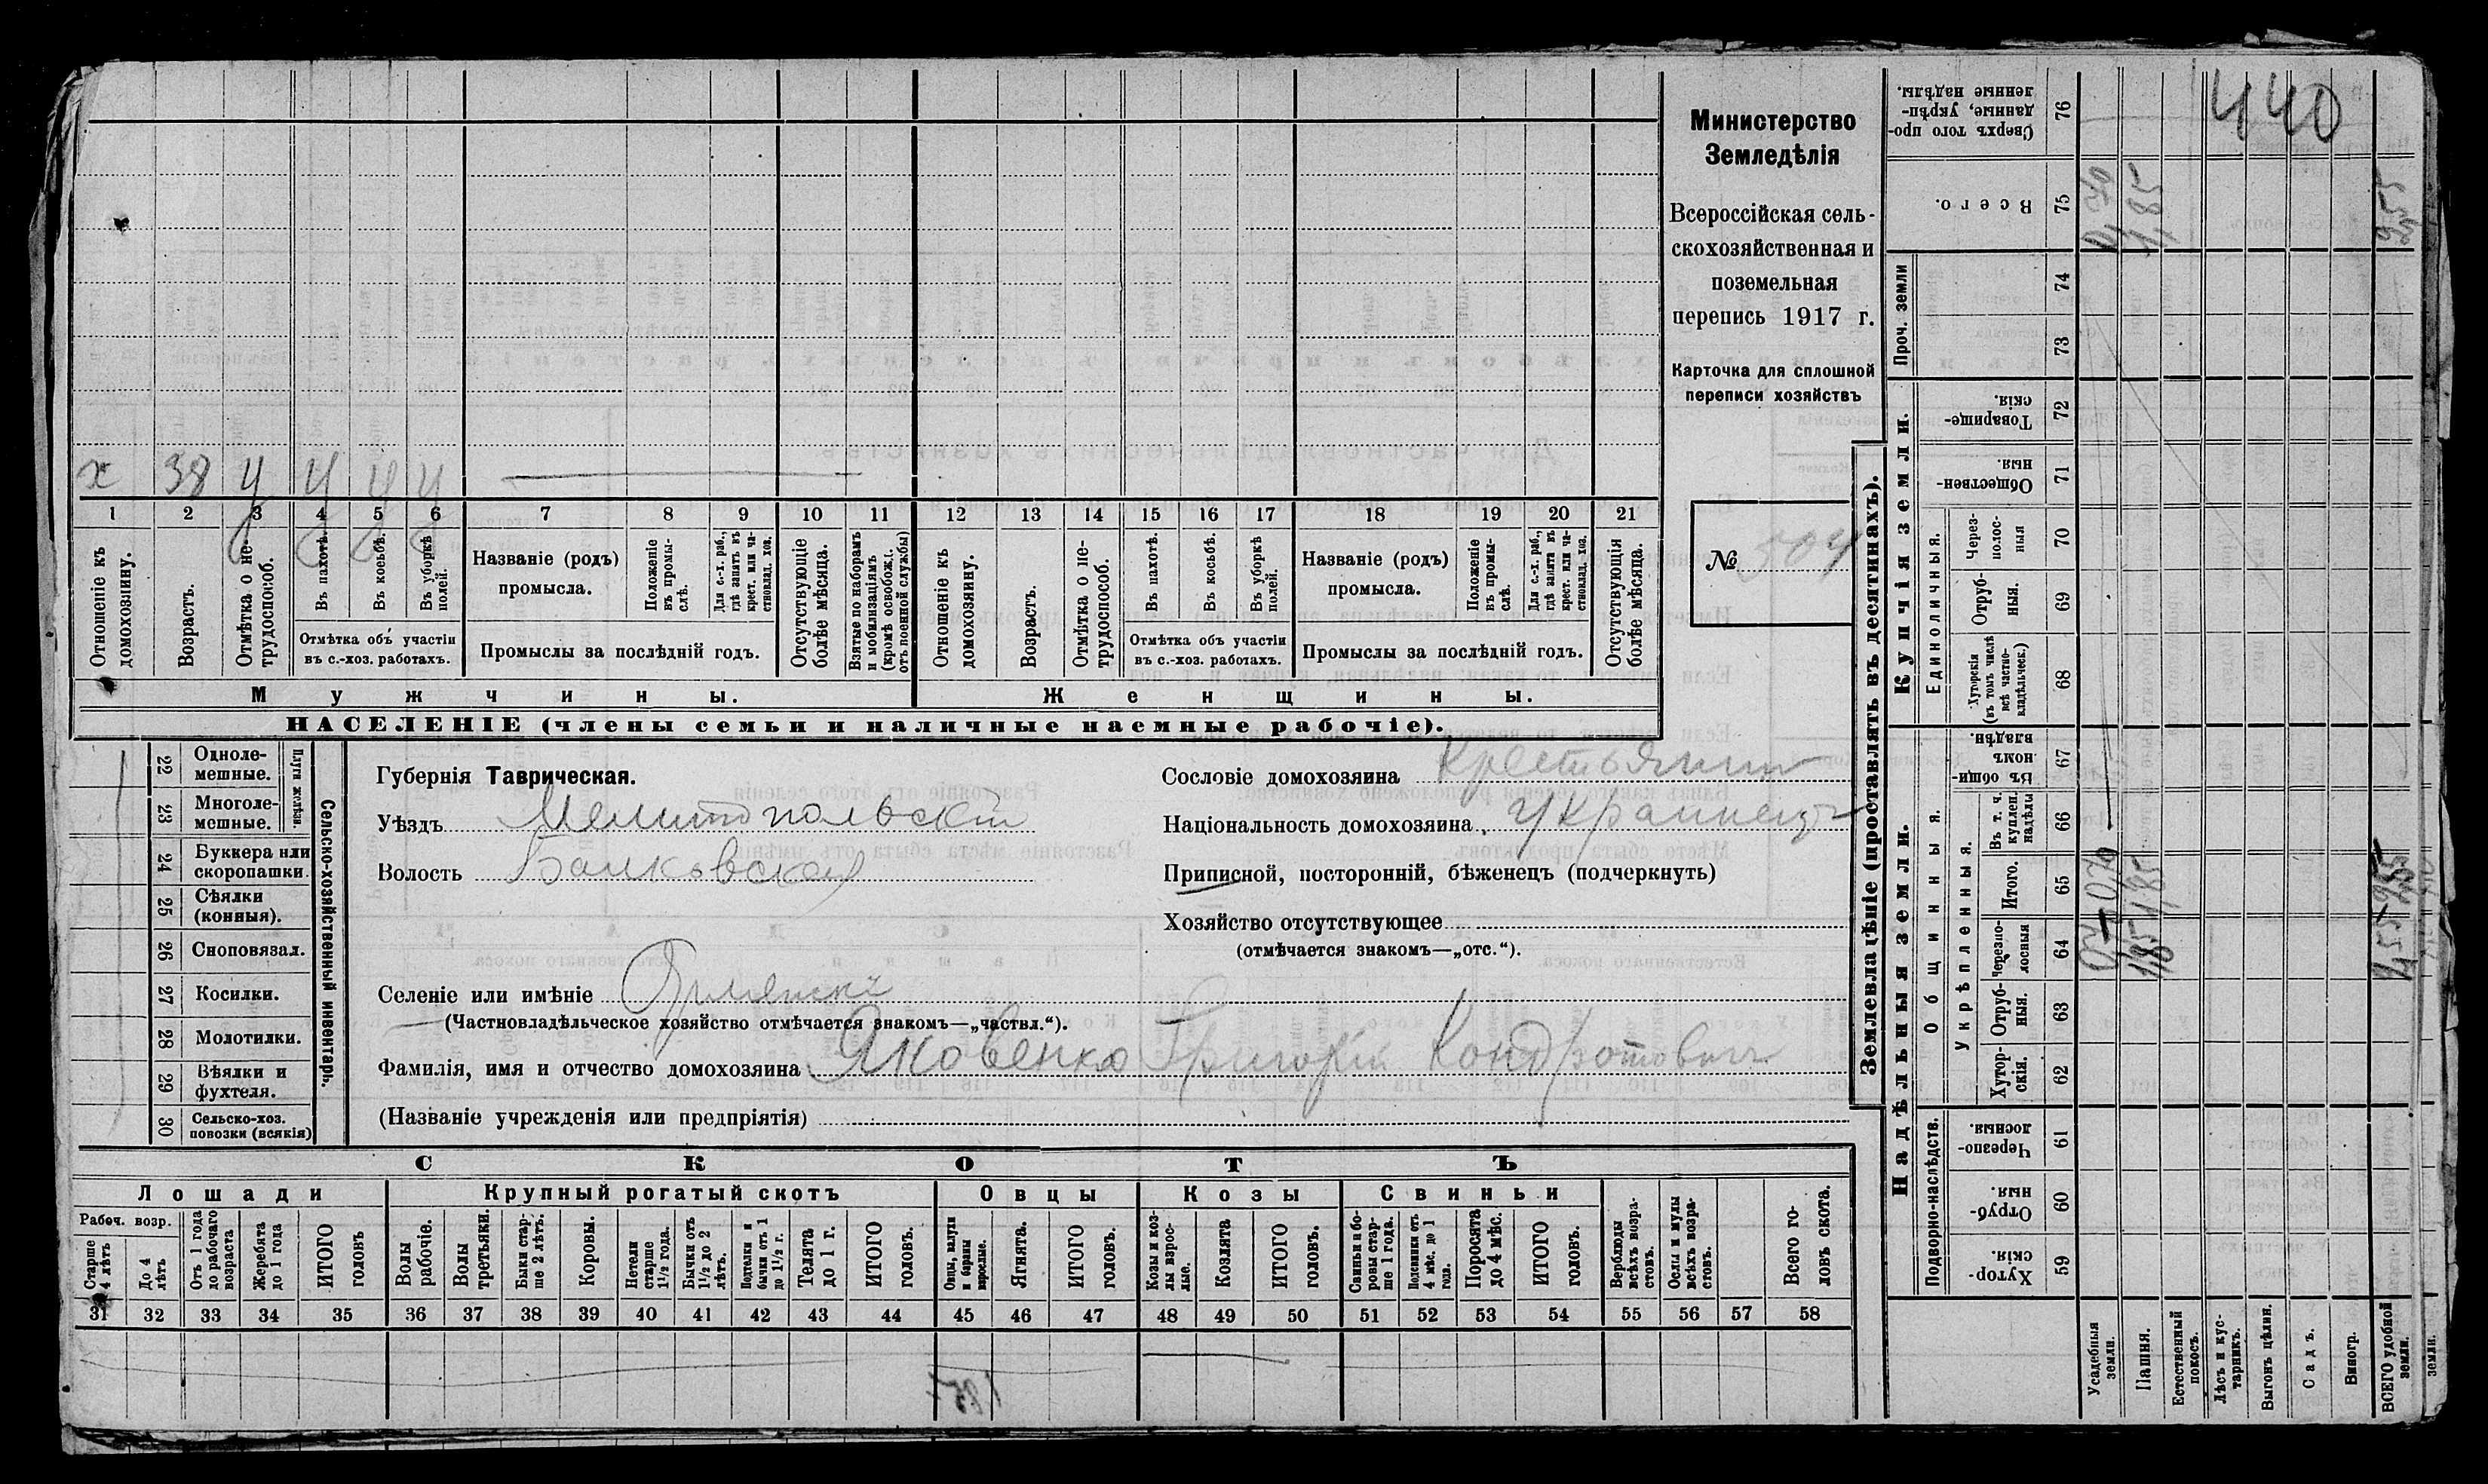 Министерство
Земледѣлія
Всероссійская сель-
скохозяйственная и
поземельная
перепись 1917 г.
Карточка для сплошной
переписи хозяйствъ
№ 504
х 38 у у у у
1 2 3 4 5 6 7 8 9 10 11 12 13 14 15 16 17 18 19 20 21
Отношеніе къ домохозяину.
Возрастъ.
Отмѣтка о не-трудоспособ.
Въ пахотѣ.
Въ косьбѣ.
Въ уборкѣ полей.
Отмѣтка объ участіи
въ с.-хоз. работахъ.
Названіе (родъ)
промысла.
Положеніе въ промы-слѣ.
Для с.-х. раб., гдѣ занятъ въ крест. или ча-стновлад. хоз.
Промыслы за послѣдній годъ.
Отсутствующіе болѣе мѣсяца.
Взятые по наборамъ и мобилизаціямъ (кромѣ освобожд. отъ военной службы)
Отношеніе къ домохозяину.
Возрастъ.
Отмѣтка о не-трудоспособ.
Въ пахотѣ.
Въ косьбѣ.
Въ уборкѣ полей.
Отмѣтка объ участіи
въ с.-хоз. работахъ.
Названіе (родъ)
промысла.
Положеніе въ промы-слѣ.
Для с.-х. раб., гдѣ занятъ въ крест. или ча-стновлад. хоз.
Промыслы за послѣдній годъ.
Отсутствующія болѣе мѣсяца.
Мужчины.
Женщины.
НАСЕЛЕНІЕ (члены семьи и наличные наемные рабочіе).
Сельско-хозяйственный инвентарь.
Плуги желѣзн.
22 Одноле-мешные.
23 Многоле-мешные.
24 Буккера или скоропашки.
25 Сѣялки (конныя).
26 Сноповязал.
27 Косилки.
28 Молотилки.
29 Вѣялки и фухтеля.
30 Сельско-хоз. повозки (всякія)
Губернія Таврическая.
Уѣздъ Мелитопольскій
Волость Балковская
Сословіе домохозяина Крестьянин
Національность домохозяина Украинецъ
Приписной, посторонній, бѣженецъ (подчеркнуть)
Хозяйство отсутствующее
(отмѣчается знакомъ—„отс.“).
Селеніе или имѣніе
(Частновладѣльческое хозяйство отмѣчается знакомъ—„частвл.“).
Фамилія, имя и отчество домохозяина Яковенко Григорій Кондротович
(Названіе учрежденія или предпріятія)
СКОТЪ
Лошади
Крупный рогатый скотъ
Овцы
Козы
Свиньи
Рабоч. возр.
Старше 4 лѣтъ
До 4 лѣтъ
Отъ 1 года до рабочаго возраста
Жеребята до 1 года
ИТОГО головъ
Волы рабочіе.
Волы третьяки.
Быки стар-ше 2 лѣтъ.
Коровы.
Нетели старше 1½ года.
Бычки отъ 1½ до 2 лѣтъ.
Подтелки и бычки отъ 1 до 1½ г.
Телята до 1 г.
ИТОГО головъ.
Овцы, валухи и бараны взрослые.
Ягнята.
ИТОГО головъ.
Козы и коз-лы взрос-лые.
Козлята
ИТОГО головъ.
Свиньи и бо-ровы стар-ше 1 года.
Подсвинки отъ 4 мѣс. до 1 года.
Поросята до 4 мѣс.
ИТОГО головъ.
Верблюды всѣхъ возра-стовъ.
Ослы и мулы всѣхъ возра-стовъ.
Всего го-ловъ скота.
31 32 33 34 35 36 37 38 39 40 41 42 43 44 45 46 47 48 49 50 51 52 53 54 55 56 57 58
Землевладѣніе (проставлять въ десятинахъ).
440
Сверхъ того про-данные, укрѣп-ленные надѣлы. 76
Всего. 75 0,70 1,85
Проч. земли
74
73
Купчія земли.
Товарище-скія. 72
Обществен-ныя. 71
Единоличныя.
Черезполос-ныя 70
Отруб-ныя. 69
Хуторскія (въ томъ числѣ всѣ частно-владѣльческ.) 68
Надѣльныя земли.
Общинныя.
Въ общи-номъ владѣн. 67
Укрѣпленныя.
Въ т. ч. куплен. надѣлы 66
Итого. 65
Черезпо-лосныя 64
Отруб-ныя. 63
Хутор-скія. 62
Подворно-наслѣдств.
Черезпо-лосныя. 61
Отруб-ныя. 60
Хутор-скія. 59
Усадебныя земли.
Пашня.
Естественный покосъ.
Лѣсъ и кус-тарникъ.
Выгонъ цѣлин.
Садъ.
Виногр.
ВСЕГО удобной земли.
земли.